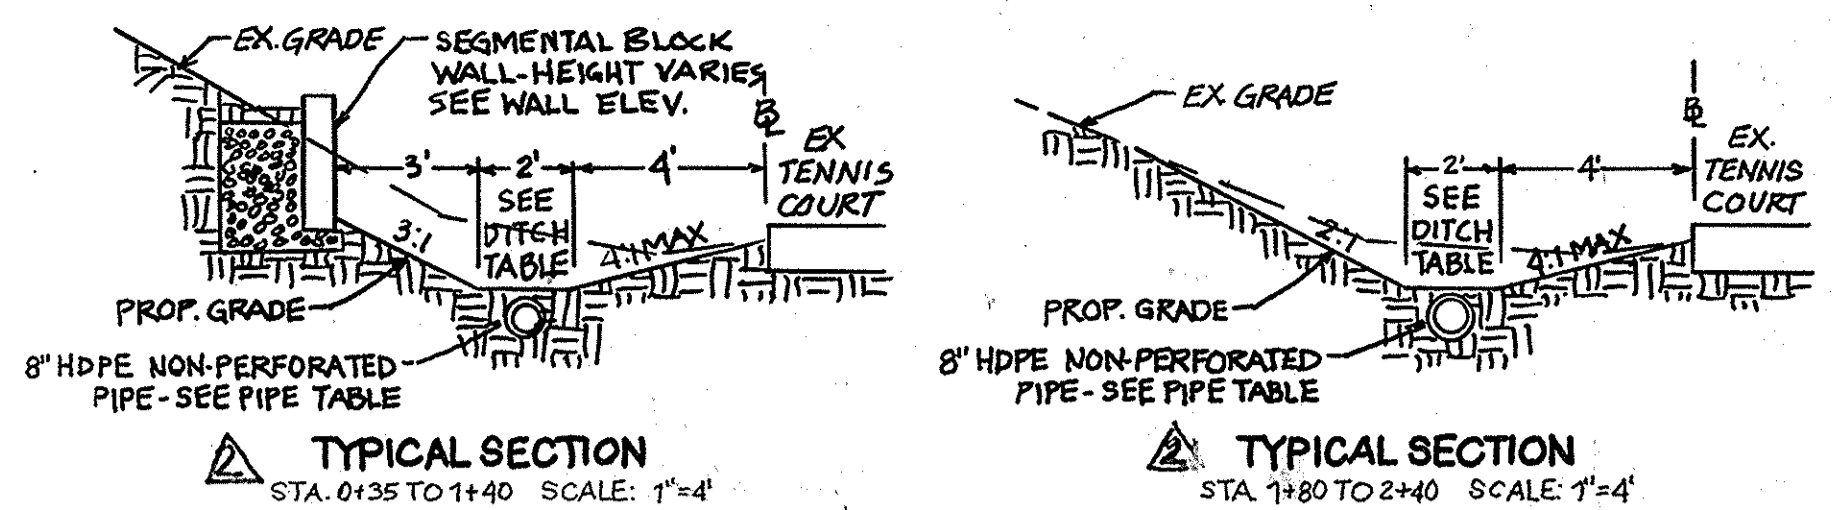 EX. GRADE
SEGMENTAL BLOCK
WALL-HEIGHT VARIES
SEE WALL ELEV.
BL
EX
TENNIS
COURT
3'
2'
4'
SEE
DITCH
TABLE
3:1
4:1 MAX
PROP. GRADE
8" HDPE NON-PERFORATED
PIPE-SEE PIPE TABLE
2 TYPICAL SECTION
STA. 0+35 TO 1+40 SCALE: 1"=4'
EX. GRADE
BL
EX.
TENNIS
COURT
2'
4'
SEE
DITCH
TABLE
2:1
4:1 MAX
PROP. GRADE
8" HDPE NON-PERFORATED
PIPE-SEE PIPE TABLE
2 TYPICAL SECTION
STA. 1+80 TO 2+40 SCALE: 1"=4'